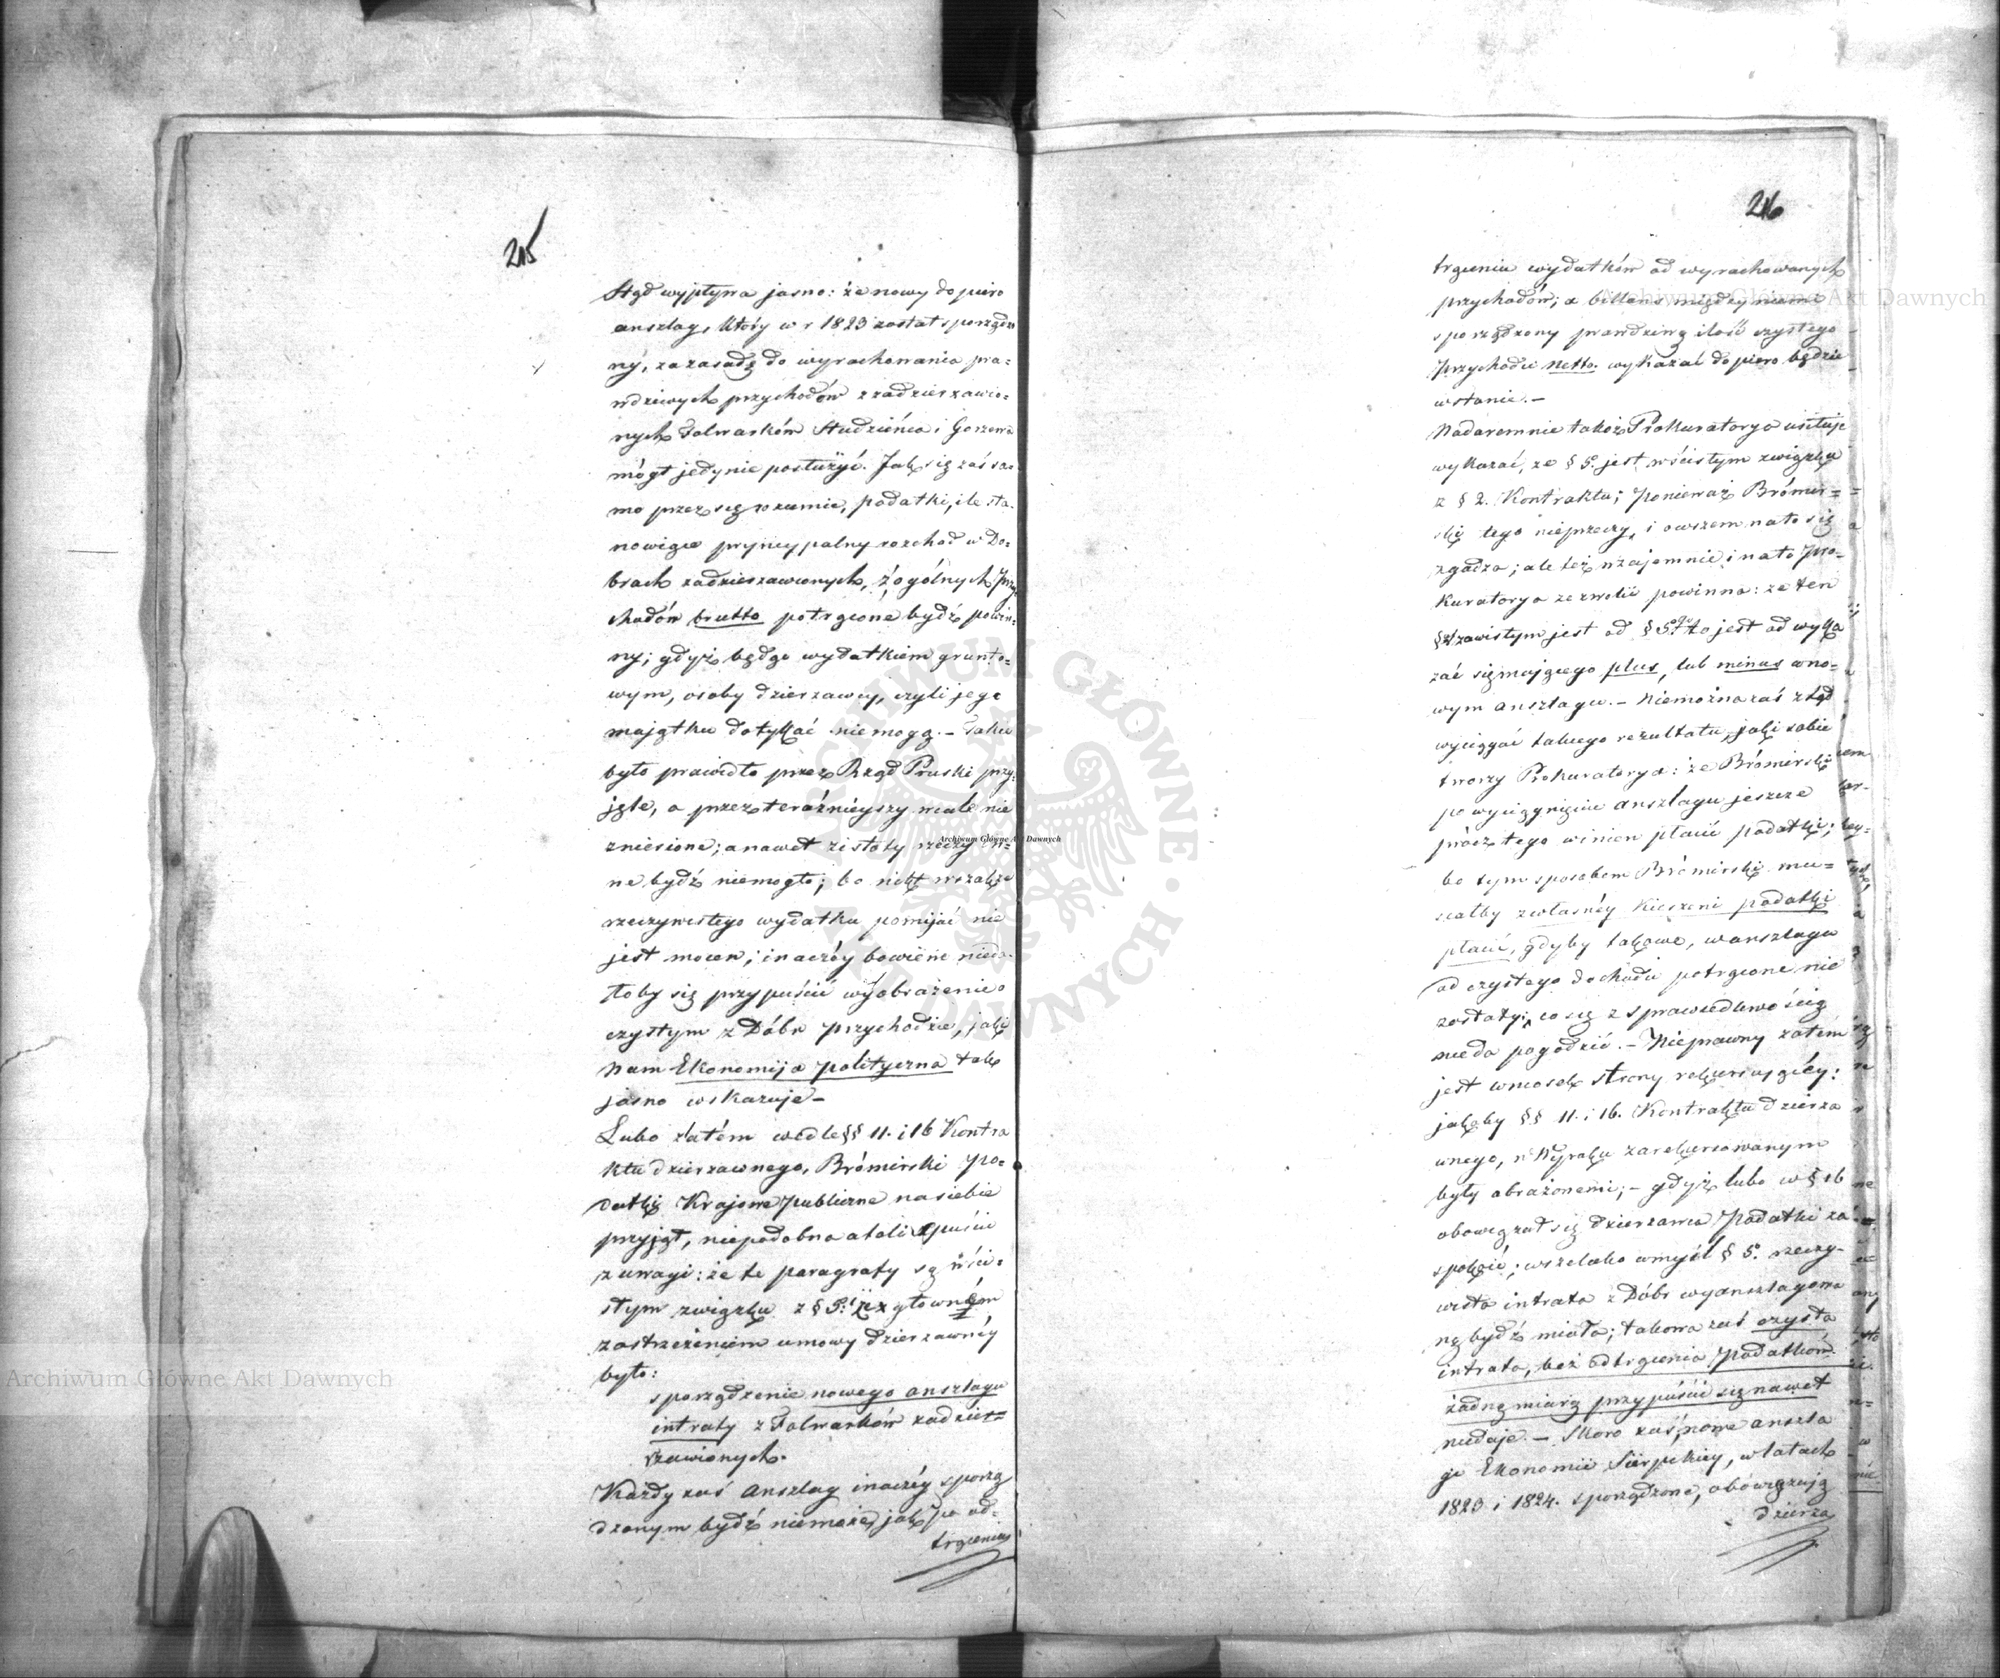 215
Stąd wypływa jasno: że nowy dopiero
anszlag, który w r 1823 został sporządzo
ny, za zasadę do wyrachowania pra=
wdziwych przychodów z zadzierzawio=
nych Folwarków Studzieńca i Gorzewa
mógł jedynie posłużyć. Jak się zaś sa=
mo przez się rozumie, podatki, ile sta=
nowiące pryncypalny rozchod w Do=
brach zadzierzawionych, z ogólnych Przy
chodów brutto potrącone bydź powin=
ny; gdyż będąc wydatkiem grunto=
wym, osoby dzierzawcy, czyli jego
majątku dotykać niemogą. - Takie
było prawidło przez Rząd Pruski przy=
jęte, a przez teraźnieyszy wcale nie
zniesione; a nawet z istoty rzeczy in=
ne bydź niemogło; bo nikt wszakże
rzeczywistego wydatku pomijać nie
jest mocen; inaczéy bowiem nieda=
łoby się przypuścić wyobrażenie o
czystym z Dóbr Przychodzie, jaki
nam Ekonomija polityczna tak
jasno wskazuje -
Lubo zatém wedle §§ 11. i 16 Kontra
ktu dzierzawnego, Brómirski Po=
datki Krajowe Publiczne na siebie
przyjął, niepodobna atoli spuścić
z uwagi: że te paragrafy są w ści=
słym związku z § 5. głowném
zastrzeżeniem umowy dzierzawnéy
było:
sporządzenie nowego anszlagu
intraty z Folwarków zadzier=
zawionych.
Każdy zaś anszlag inaczéy sporzą
dzonym bydź niemoże, jak Po od=
trąceniu
216
trąceniu wydatków od wyrachowanych
przychodów; a billans między niemi
sporządzony prawdziwą ilość czystego
Przychodu netto wykazać dopiero będzie
wstanie. -
Nadaremnie także Prokuratorya usiłuje
wykazać, ze § 5. jest w ścisłym związku
z § 2. Kontraktu; ponieważ Brómir=
ski tego nieprzeczy, i owszem na to się
zgadza; ale też wzajemnie i na to Pro=
kuratorya zezwolić powinna: że ten
§ zawisłym jest od § 5. to jest od wyka
zać się mającego plus, lub minus w no=
wym anszlagu. - Niemożna zaś ztąd
wyciągać takiego rezultatu, jaki sobie
tworzy Prokuratorya: że Brómirski
po wyciągnięciu anszlagu jeszcze
prócz tego winien płacić podatki;
bo tym sposobem Brómirski mu=
siałby z własnéy kieszeni podatki
płacić, gdyby takowe, w anszlagu
od czystego dochodu potrącone nie
zostały; co się z sprawiedliwością
nieda pogodzić. - Nieprawny zatém
jest wniosek strony rekursującéy:
jakoby §§ 11. i 16. Kontraktu dzierza
wnego, w Wyroku zarekursowanym
były obrażonemi; - gdyż lubo w § 16
obowiązał się dzierzawca Podatki za=
spokoić; wszelako w myśl § 5. rzeczy=
wista intrata z Dóbr wyanszlagowa
ną bydź miała; takowa zaś czysta
intrata, bez odtrącenia Podatków
żadną miarą przypuścić się nawet
niedaje. - Skoro zaś nowe anszla
gi Ekonomii Sierpskiey, w latach
1823 i 1824. sporządzone, obówiązują
dzierża
Archiwum Główne Akt Dawnych